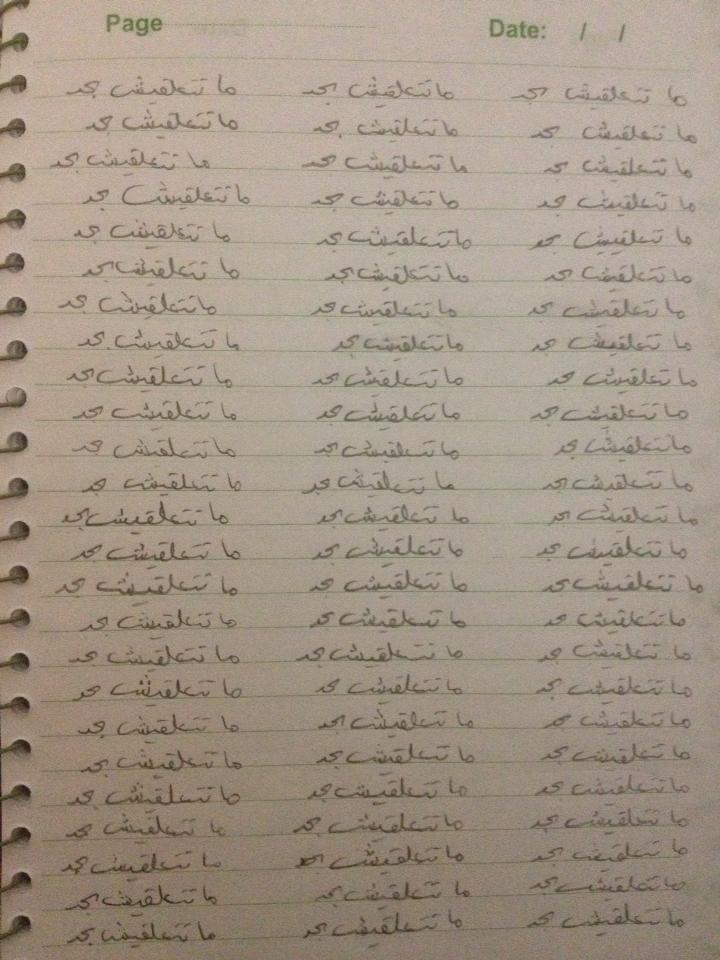 Page Date: / /
ما تتعلقيش بحد ما تتعلقيش بحد ما تتعلقيش بحد
ما تتعلقيش بحد ما تتعلقيش بحد ما تتعلقيش بحد
ما تتعلقيش بحد ما تتعلقيش بحد ما تتعلقيش بحد
ما تتعلقيش بحد ما تتعلقيش بحد ما تتعلقيش بحد
ما تتعلقيش بحد ما تتعلقيش بحد ما تتعلقيش بحد
ما تتعلقيش بحد ما تتعلقيش بحد ما تتعلقيش بحد
ما تتعلقيش بحد ما تتعلقيش بحد ما تتعلقيش بحد
ما تتعلقيش بحد ما تتعلقيش بحد ما تتعلقيش بحد
ما تتعلقيش بحد ما تتعلقيش بحد ما تتعلقيش بحد
ما تتعلقيش بحد ما تتعلقيش بحد ما تتعلقيش بحد
ما تتعلقيش بحد ما تتعلقيش بحد ما تتعلقيش بحد
ما تتعلقيش بحد ما تتعلقيش بحد ما تتعلقيش بحد
ما تتعلقيش بحد ما تتعلقيش بحد ما تتعلقيش بحد
ما تتعلقيش بحد ما تتعلقيش بحد ما تتعلقيش بحد
ما تتعلقيش بحد ما تتعلقيش بحد ما تتعلقيش بحد
ما تتعلقيش بحد ما تتعلقيش بحد ما تتعلقيش بحد
ما تتعلقيش بحد ما تتعلقيش بحد ما تتعلقيش بحد
ما تتعلقيش بحد ما تتعلقيش بحد ما تتعلقيش بحد
ما تتعلقيش بحد ما تتعلقيش بحد ما تتعلقيش بحد
ما تتعلقيش بحد ما تتعلقيش بحد ما تتعلقيش بحد
ما تتعلقيش بحد ما تتعلقيش بحد ما تتعلقيش بحد
ما تتعلقيش بحد ما تتعلقيش بحد ما تتعلقيش بحد
ما تتعلقيش بحد ما تتعلقيش بحد ما تتعلقيش بحد
ما تتعلقيش بحد ما تتعلقيش بحد ما تتعلقيش بحد
ما تتعلقيش بحد ما تتعلقيش بحد ما تتعلقيش بحد